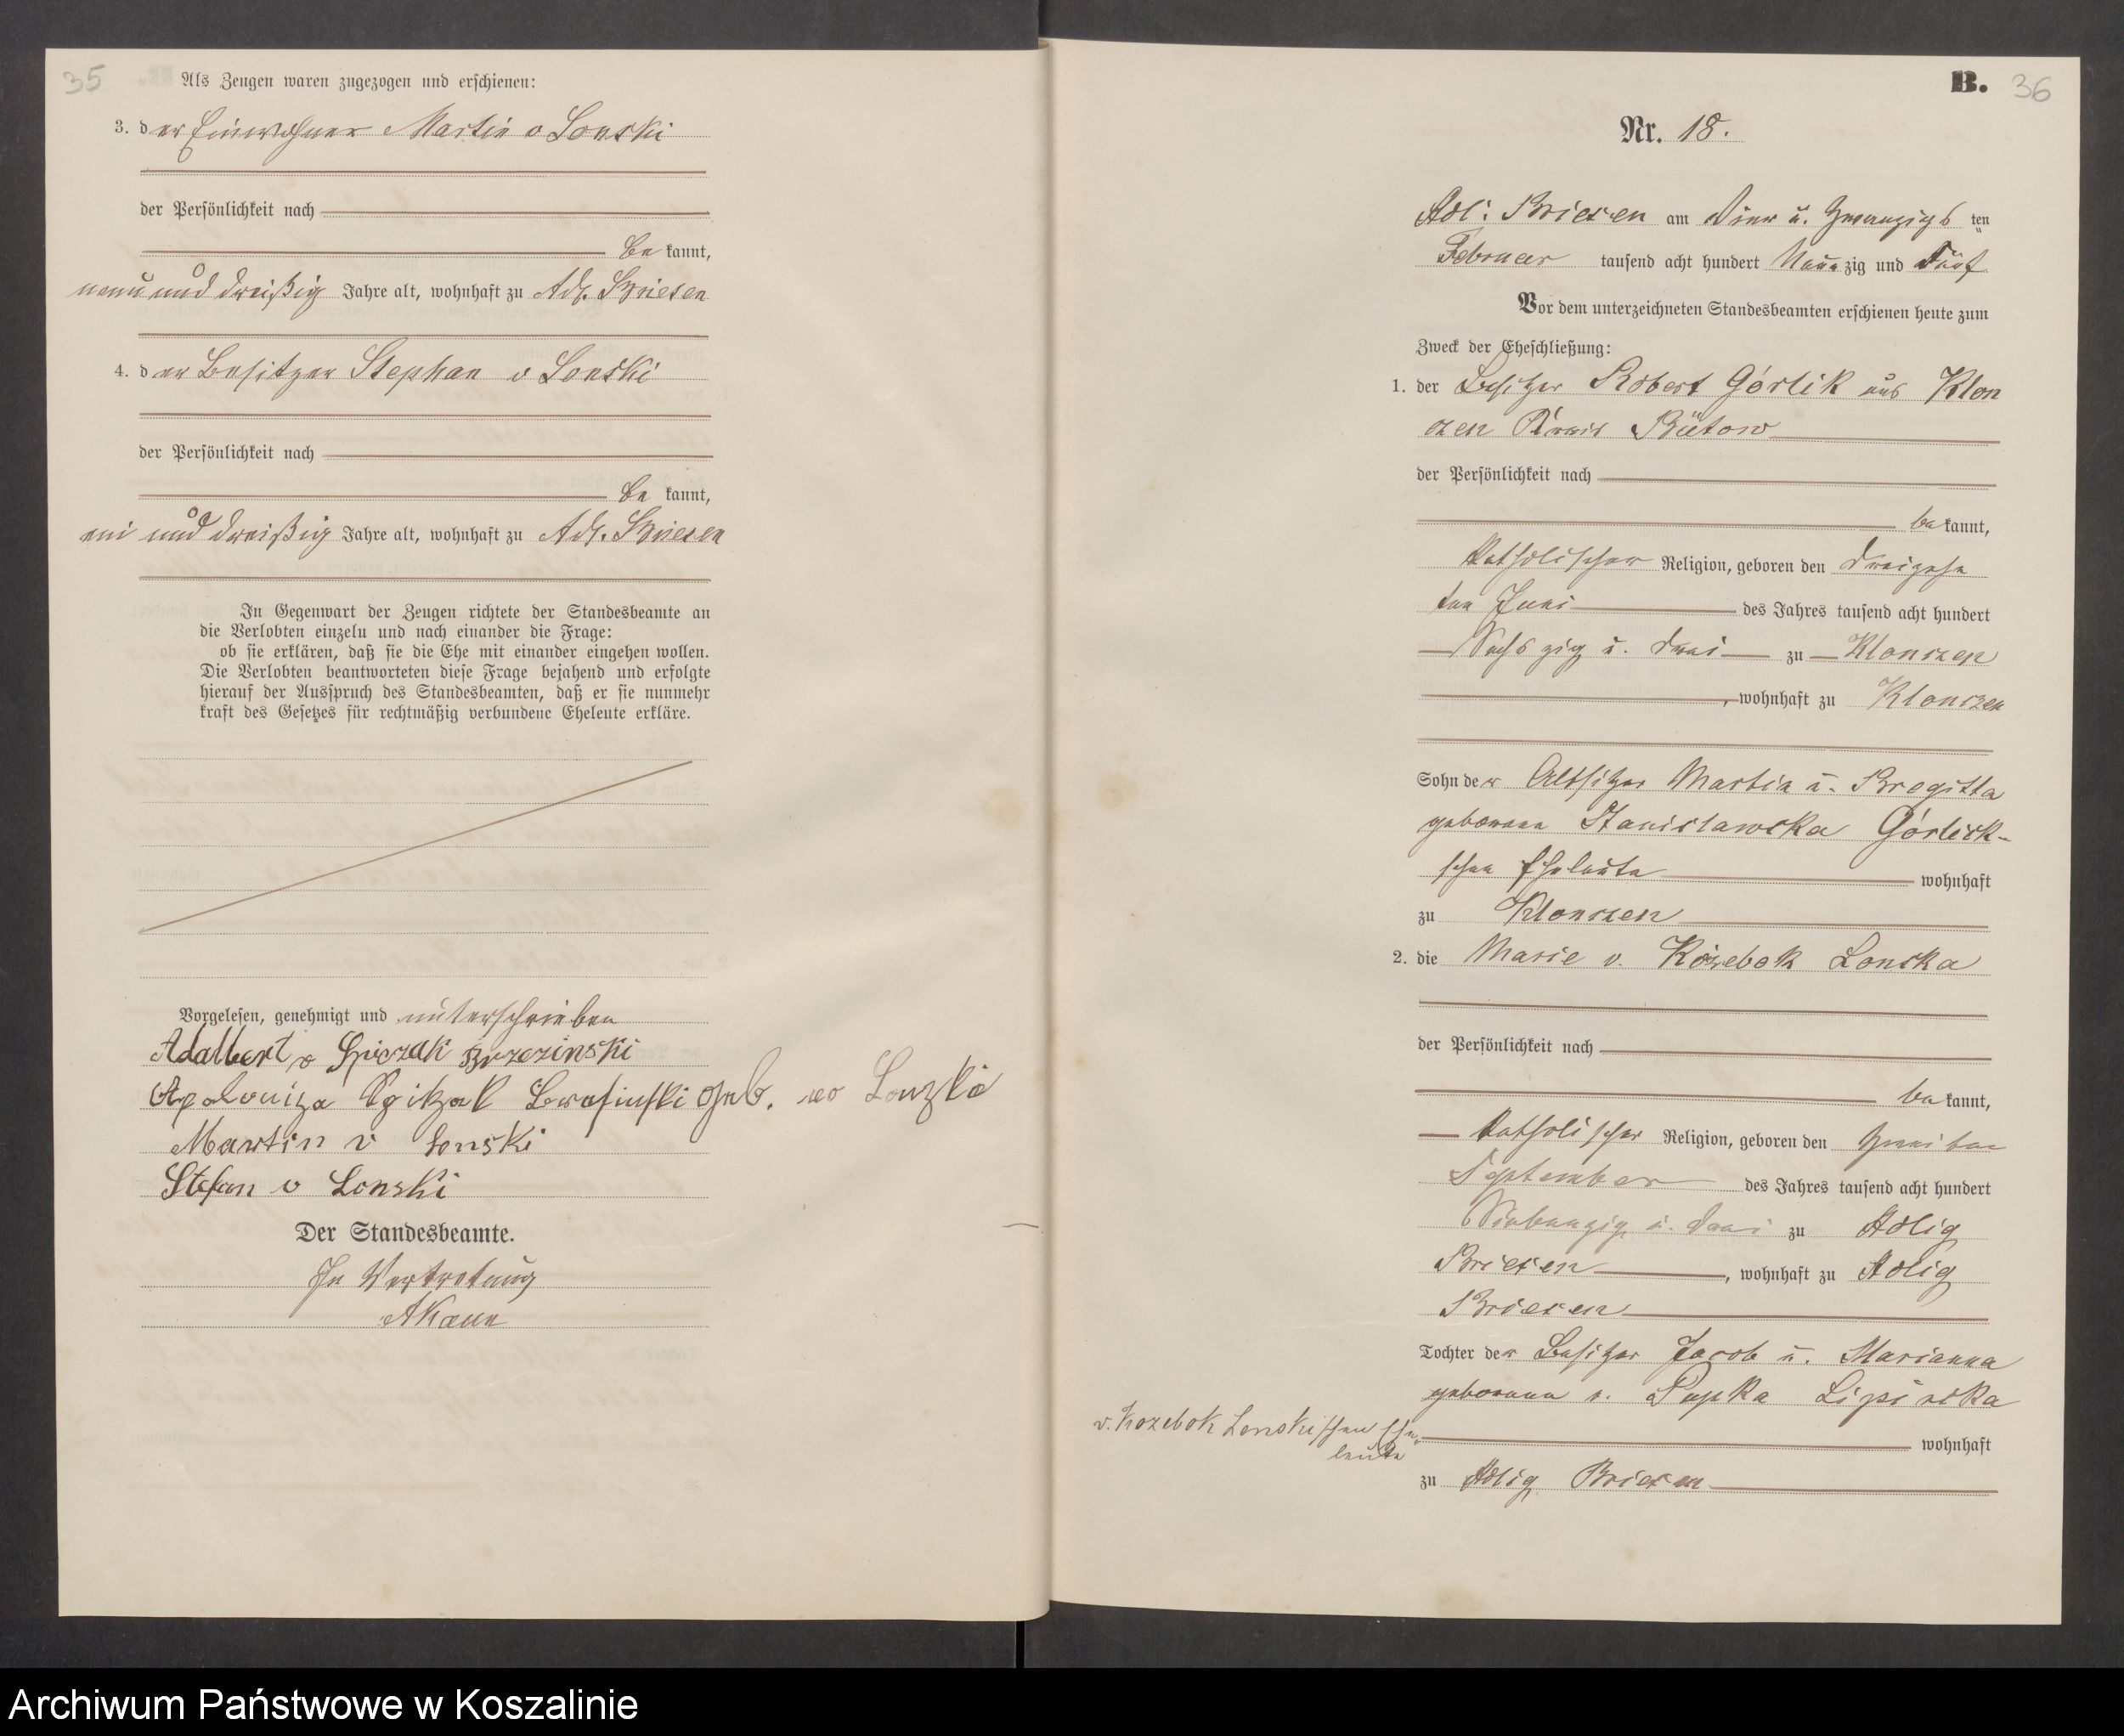 35
Als Zeugen waren zugezogen und erschienen:
3. der Einwohner Martin v Lonski
der Persönlichkeit nach
be kannt,
neun und dreißig Jahre alt, wohnhaft zu Adl. Briesen
4. der Besitzer Stephan v Lonski
der Persönlichkeit nach
be kannt,
und dreißig Jahre alt, wohnhaft zu Adl. Briesen
In Gegenwart der Zeugen richtete der Standesbeamte an
die Verlobten einzeln und nach einander die Frage:
ob sie erklären, daß sie die Ehe mit einander eingehen wollen.
Die Verlobten beantworteten diese Frage bejahend und erfolgte
hierauf der Ausspruch des Standesbeamten, daß er sie nunmehr
kraft des Gesetzes für rechtmäßig verbundene Eheleute erkläre.
Vorgelesen, genehmigt und unterschrieben
Adalbert v Spiczak Brzezinski
Apolonija geb. Lonzki
Martin v Lonski
Stefan v Lonski
Der Standesbeamte.
In Vertretung
B. 36
Nr. 18.
Adl: Briesen am Vier u. Zwanzigs ten
Februar tausend acht hundert Neunzig und Fünf
Vor dem unterzeichneten Standesbeamten erschienen heute zum
Zweck der Eheschließung:
1. der Besitzer Robert Górlik aus Klon
czen Kreis Bütow
der Persönlichkeit nach
be kannt,
katholischer Religion, geboren den dreizehn
ten Juni des Jahres tausend acht hundert
Sechszig u. drei zu Klonczen
, wohnhaft zu Klonczen
Sohn der Altsitzer Martin u. Bregitta
geborene Stanislawska Górlick-
schen Eheleute wohnhaft
zu Klonczen
2. die Marie v. Kózebok Lonska
der Persönlichkeit nach
be kannt,
katholischer Religion, geboren den zweiten
September des Jahres tausend acht hundert
Siebenzig u. drei zu Adlig
Briesen , wohnhaft zu Adlig
Briesen
Tochter der Besitzer Jacob u. Marianna
geborenen v. Pupka Lipinska
v. Kozebok Lonskischen Ehe-
leute
wohnhaft
zu Adlig Briesen
Archiwum Państwowe w Koszalinie